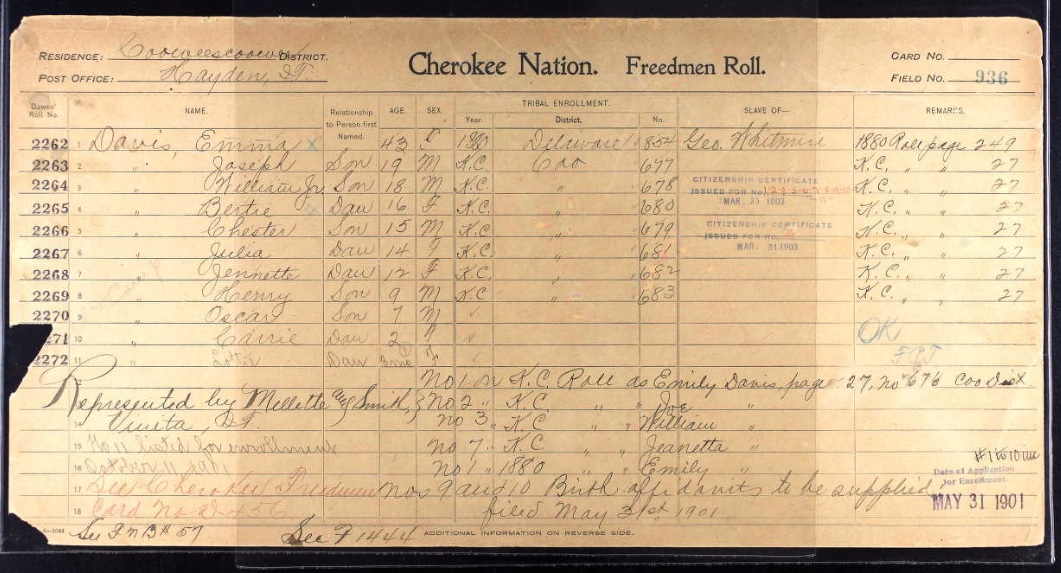 RESIDENCE: Cooweescoowee DISTRICT.
POST OFFICE: Hayden, I.T.
Cherokee Nation. Freedmen Roll.
CARD NO.
FIELD NO. 936
Dawes' Roll No. NAME. Relationship to Person first Named. AGE. SEX. TRIBAL ENROLLMENT. Year. District. No. SLAVE OF— REMARKS.
2262 1 Davis, Emma x 43 F 1880 Delaware 854 Geo. Whitmire 1880 Roll page 249
2263 2 " Joseph Son 19 M K.C. Coo 697 K.C. " " 27
2264 3 " William Jr Son 18 M K.C. " 678 K.C. " " 27
CITIZENSHIP CERTIFICATE
ISSUED FOR No.
MAR. 1903
2265 4 " Bertie Dau 16 F K.C. " 680 K.C. " " 27
2266 5 " Chester Son 15 M K.C. " 679 K.C. " " 27
CITIZENSHIP CERTIFICATE
ISSUED FOR No.
MAR. 31 1903
2267 6 " Julia Dau 14 F K.C. " 681 K.C. " " 27
2268 7 " Jennette Dau 12 F K.C. " 682 K.C. " " 27
2269 8 " Henry Son 9 M K.C. " 683 K.C. " " 27
2270 9 " Oscar Son 7 M
271 10 " Carrie Dau 2 F OK
2272 11 " Dau 3mo F
No 1 on K.C. Roll as Emily Davis, page 27, no 676 Coo Dist.
Represented by Mellette & Smith, No 2 " K.C. " " Joe "
14 Vinita, I.T. No 3 " K.C. " " William "
15 No 11 listed for enrollment No 7 " K.C. " " Jeanetta "
16 October 11, 1901 No 1 " 1880 " " Emily " #1 to 10 inc
17 See Cherokee Freedmen Nos 9 and 10 Birth affidavits to be supplied.
Date of Application for Enrollment.
MAY 31 1901
18 Card No filed May 31st 1901
See F 1444 ADDITIONAL INFORMATION ON REVERSE SIDE.